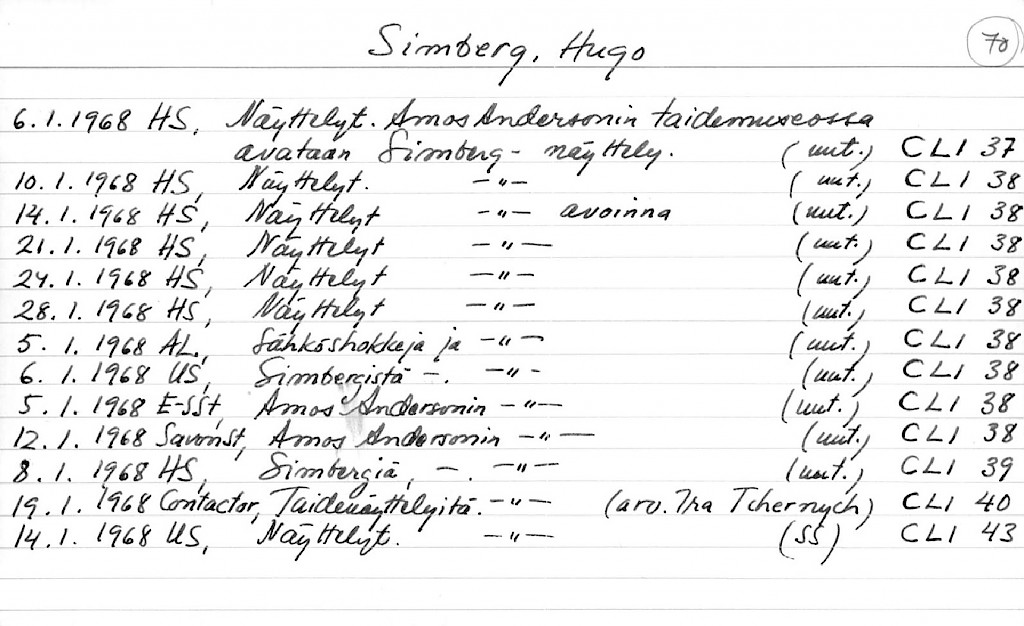 Simberg, Hugo
70
6.1.1968 HS, Näyttelyt. Amos Andersonin taidemuseossa
avataan Simberg-näyttely. (uut.) CLI 37
10.1.1968 HS, Näyttelyt. -"- (uut.) CLI 38
14.1.1968 HS, Näyttelyt -"- avoinna (uut.) CLI 38
21.1.1968 HS, Näyttelyt -"- (uut.) CLI 38
24.1.1968 HS, Näyttelyt -"- (uut.) CLI 38
28.1.1968 HS, Näyttelyt -"- (uut.) CLI 38
5.1.1968 AL, Sähköshokkeja ja -"- (uut.) CLI 38
6.1.1968 US, Simbergistä -. -"- (uut.) CLI 38
5.1.1968 E-SSt, Amos Andersonin -"- (uut.) CLI 38
12.1.1968 SavonSt, Amos Andersonin -"- (uut.) CLI 38
8.1.1968 HS, Simbergiä, -. -"- (uut.) CLI 39
19.1.1968 Contactor, Taidenäyttelyitä. -"- (arv. Ira Tchernych) CLI 40
14.1.1968 US, Näyttelyt. -"- (SS) CLI 43